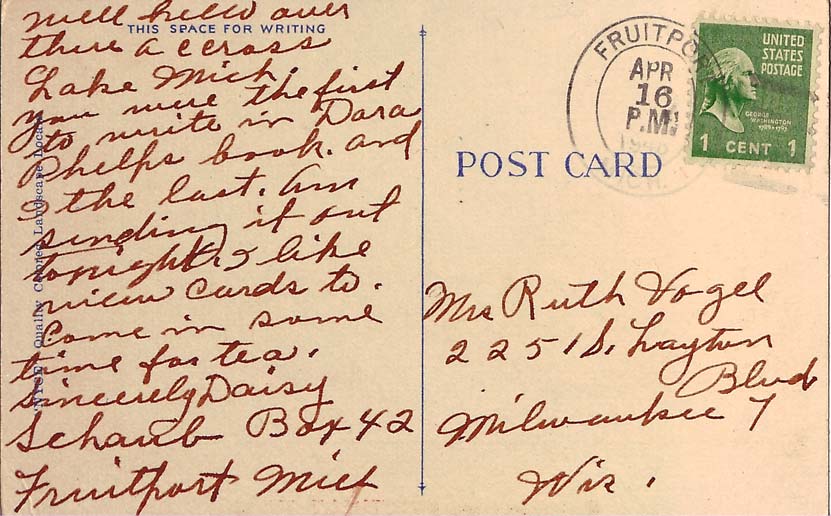 THIS SPACE FOR WRITING
well hello over
there a ccross
Lake Mich.
you were the first
to write in Dora
Phelps book. and
I the last. am
sending it out
tonight. I like
view cards to.
Come in some
time for tea.
Sincerely Daisy
Schaub Box 42
Fruitport Mich
Quality Colored Landscape
POST CARD
FRUITPORT
APR
16
P.M.
UNITED
STATES
POSTAGE
GEORGE
WASHINGTON
1789-1797
1 CENT 1
Mrs Ruth Vogel
2251 S. Layton
Blvd
Milwaukee 7
Wis.